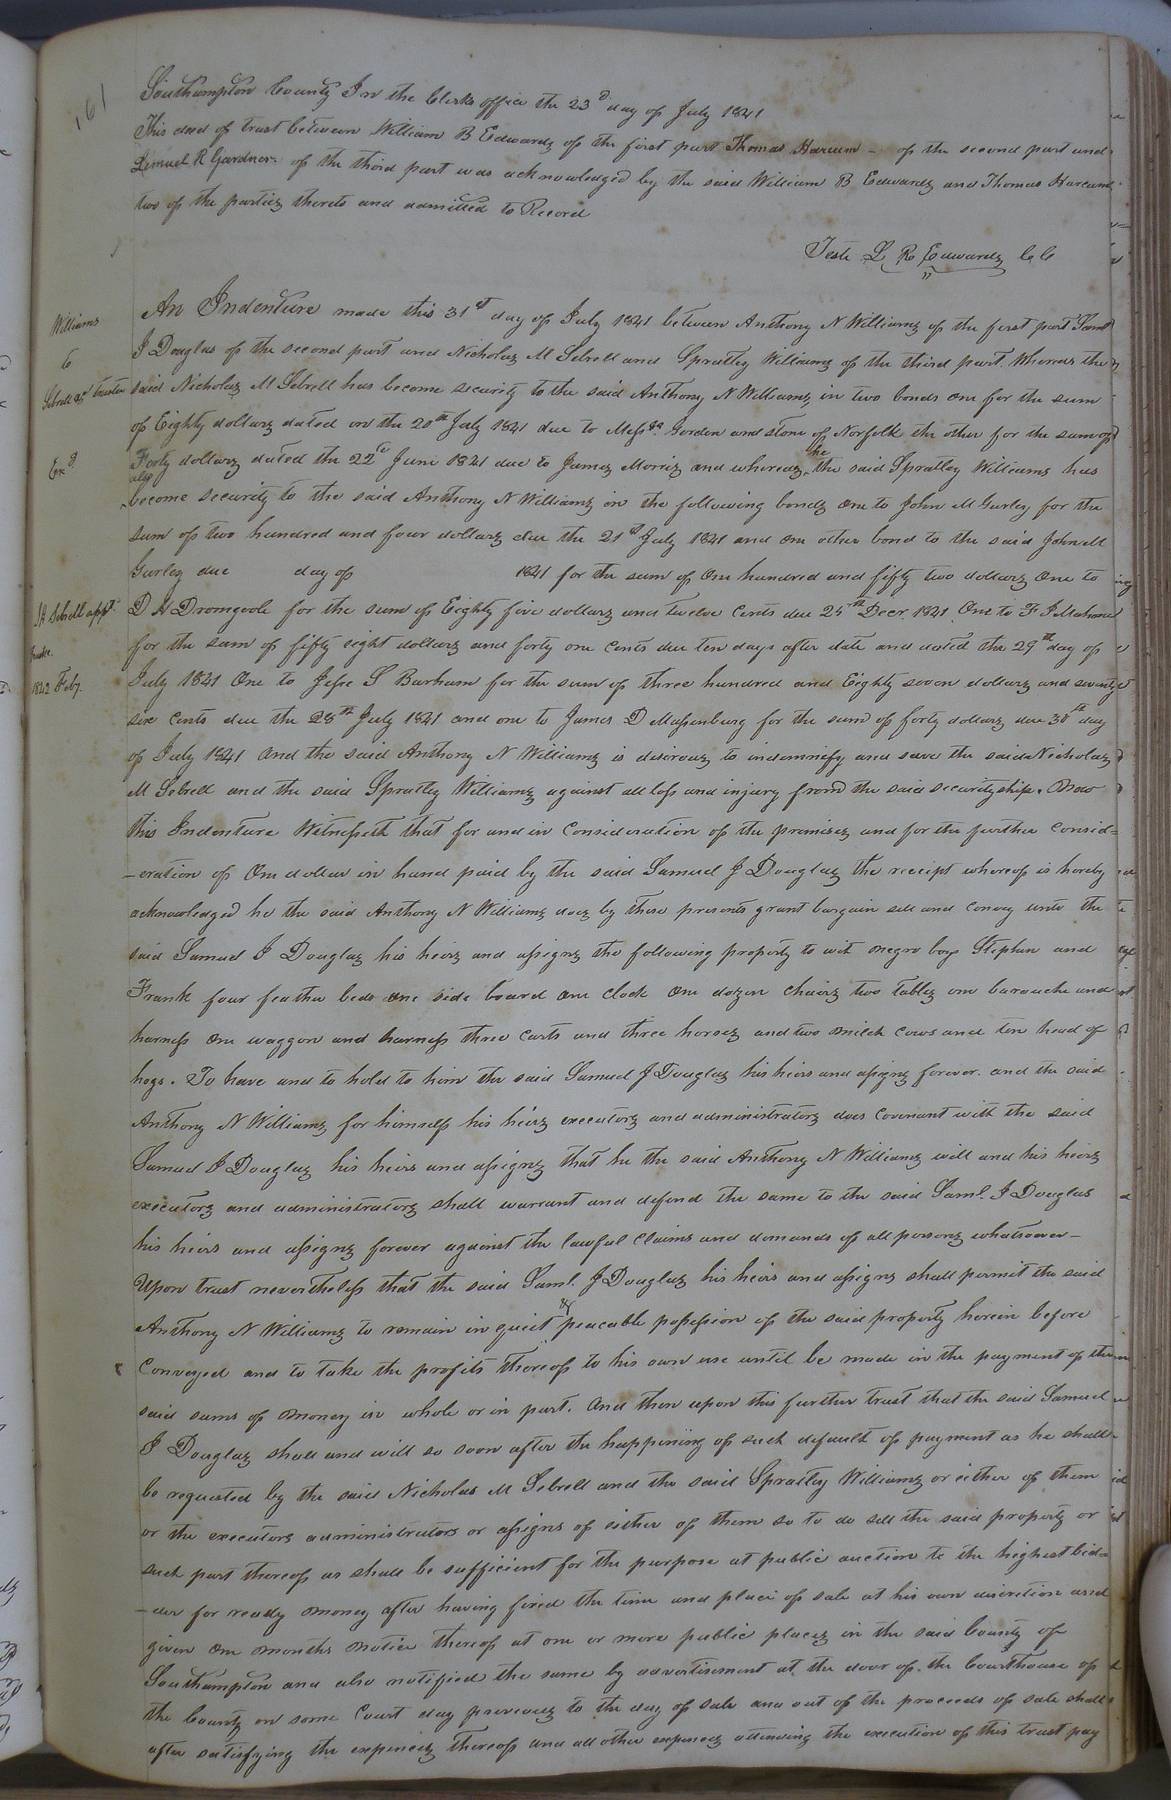 161
Southampton County In the Clerks office the 23d day of July 1841
This deed of trust between William B Edwards of the first part Thomas Harcum - of the second part and
Lemuel R Gardner of the third part was acknowledged by the said William B Edwards and Thomas Harcum
two of the parties thereto and admitted to Record
Teste L R Edwards CC
Williams
to
Sebrell &c trustee
Exd
An Indenture made this 31st day of July 1841 between Anthony N Williams of the first part Saml
J Douglas of the second part and Nicholas M Sebrell and Spratley Williams of the third part. Whereas the
said Nicholas M Sebrell has become security to the said Anthony N Williams in two bonds one for the sum
of Eighty dollars dated on the 20th July 1841 due to Messrs Gorden and Stone of Norfolk the other for the sum of
Forty dollars dated the 22d June 1841 due to James Morris and whereas he the said Spratley Williams has
also become security to the said Anthony N Williams in the following bonds One to John M Gurley for the
sum of two hundred and four dollars due the 21st July 1841 and one other bond to the said John M
Gurley due day of 1841 for the sum of One hundred and fifty two dollars One to
D A Dromgoole for the sum of Eighty five dollars and twelve Cents due 25th Decr. 1841 One to
for the sum of fifty eight dollars and forty one Cents due ten days after date and dated the 29th day of
July 1841 One to Jesse S Barham for the sum of three hundred and Eighty seven dollars and seventy
six Cents due the 28th July 1841 and one to James D Massenburg for the sum of forty dollars due 30th day
of July 1841 And the said Anthony N Williams is desirous to indemnify and save the said Nicholas
M Sebrell and the said Spratley Williams against all loss and injury from the said securityship. Now
this Indenture Witnesseth that for and in Consideration of the premises and for the further Consid=
-eration of One dollar in hand paid by the said Samuel J Douglas the receipt whereof is hereby
acknowledged he the said Anthony N Williams does by these presents grant bargain sell and convey unto the
said Samuel J Douglas his heirs and assigns the following property to wit negro boys Stephen and
Frank four feather beds one side board one clock One dozen chairs two tables one barouche and
harness one waggon and harness three carts and three horses and two milch cows and ten head of
hogs. To have and to hold to him the said Samuel J Douglas his heirs and assigns forever. and the said
Anthony N Williams for himself his heirs executors and administrators does Covenant with the said
Samuel J Douglas his heirs and assigns that he the said Anthony N Williams will and his heirs
executors and administrators shall warrant and defend the same to the said Saml. J Douglas
his heirs and assigns forever against the lawful claims and demands of all persons whatsoever-
Upon trust nevertheless that the said Saml. J Douglas his heirs and assigns shall permit the said
Anthony N Williams to remain in quiet & peaceable possession of the said property herein before
Conveyed and to take the profits thereof to his own use until be made in the payment of the
said sums of money in whole or in part. And then upon this further trust that the said Samuel
J Douglas shall and will so soon after the happening of such default of payment as he shall
be requested by the said Nicholas M Sebrell and the said Spratley Williams or either of them
or the executors administrators or assigns of either of them so to do sell the said property or
such part thereof as shall be sufficient for the purpose at public auction to the highest bid=
-der for ready money after having fixed the time and place of sale at his own discretion and
given one months notice thereof at one or more public places in the said County of
Southampton and also notified the same by advertisement at the door of the Courthouse of
the County on some Court day previous to the day of sale and out of the proceeds of sale shall
after satisfying the expences thereof and all other expences attending the execution of this trust pay
Sebrell appt.
1842 Feby.